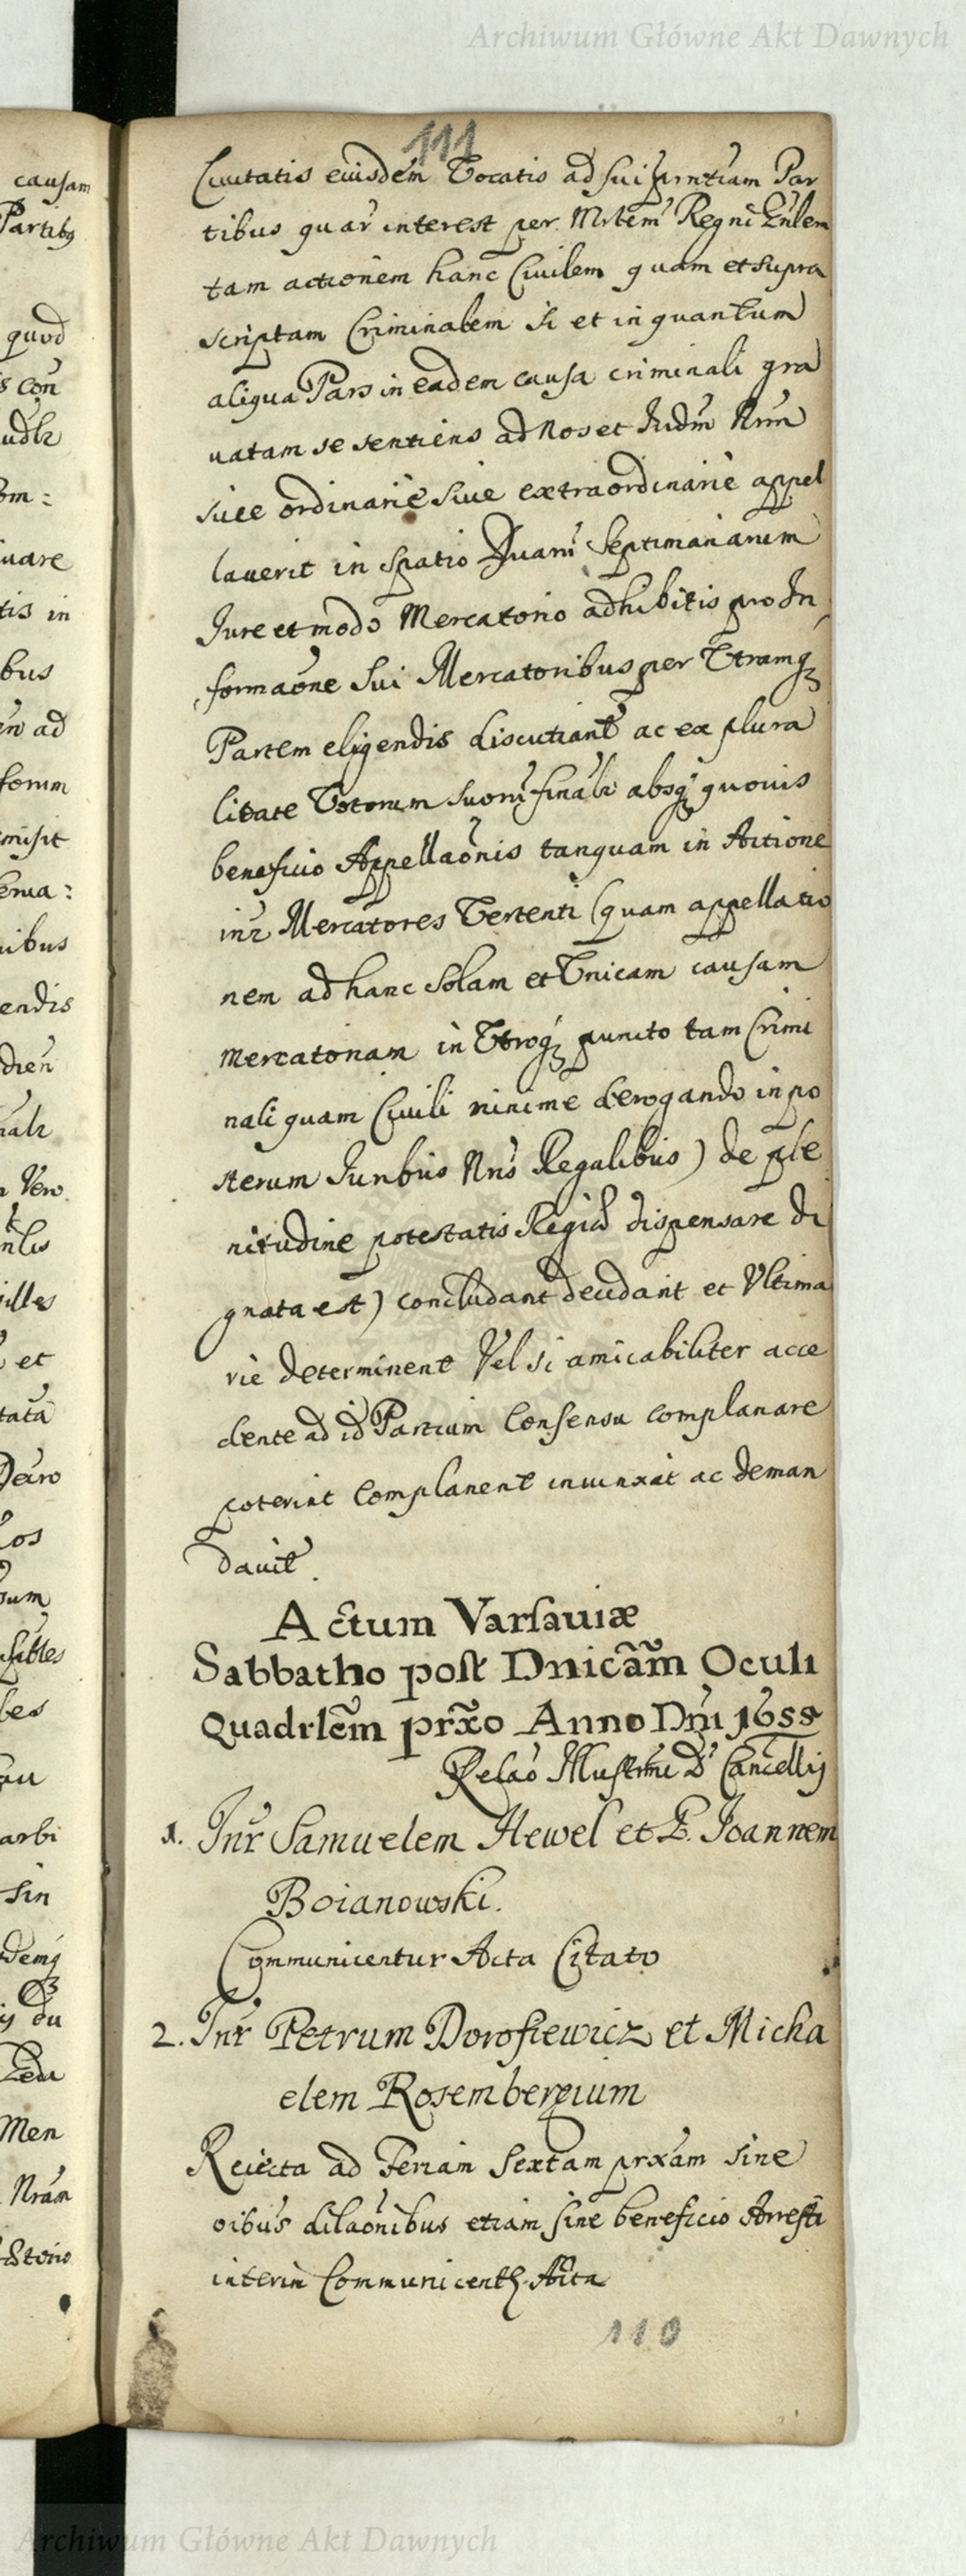 Archiwum Główne Akt Dawnych
111
causam
Partibq
quod
s con
udlr
om:
uare
tis in
bus
en ad
forum
misit
nibus
endis
dien
nalr
Vero
illes
et
tata
Deiro
los
Men
Nram
Ciuitatis eiusdem Vocatis ad sui prntiam Par
tibus quar interest per Mrtem Regni Enlem
tam actionem hanc Ciuilem quam et supra
scriptam Criminalem si et in quantum
aliqua Pars in eadem causa criminali gra
uatam se sentiens ad Nos et Iudm Nrm
siue ordinarie siue extraordinarie appel
lauerit in spatio Quatr Septimanarum
Iure et modo Mercatorio adhibitis pro In
formaone sui Mercatoribus per Vtramq
Partem eligendis discutiant ac ex plura
litate Votorum suorum finalr absq quouis
beneficio Appellaonis tanquam in Actione
intr Mercatores Vertenti (quam appellatio
nem ad hanc solam et Vnicam causam
Mercatoriam in Vtroq puncto tam Crimi
nali quam Ciuili minime derogando in po
sterum Iuribus Nris Regalibus) de ple
nitudine potestatis Regia dispensare di
gnata est) concludant decidant et Vltima
rie determinent Vel si amicabiliter acce
dente ad id Partium Consensu complanare
poterint Complanent iniunxit ac deman
dauit.
Actum Varsauiæ
Sabbatho post Dnicam Oculi
Quadrlem prxo Anno Dni 1655
Relao Illustrmi D Cancellij
1. Intr Samuelem Hewel et G. Ioannem
Boianowski.
Communicentur Acta Citato
2. Intr Petrum Dorofiewicz et Micha
elem Rosembergium
Reiecta ad Feriam Sextam prxam sine
oibus dilaonibus etiam sine beneficio Arresti
interim Communicentr Acta
110
Archiwum Główne Akt Dawnych